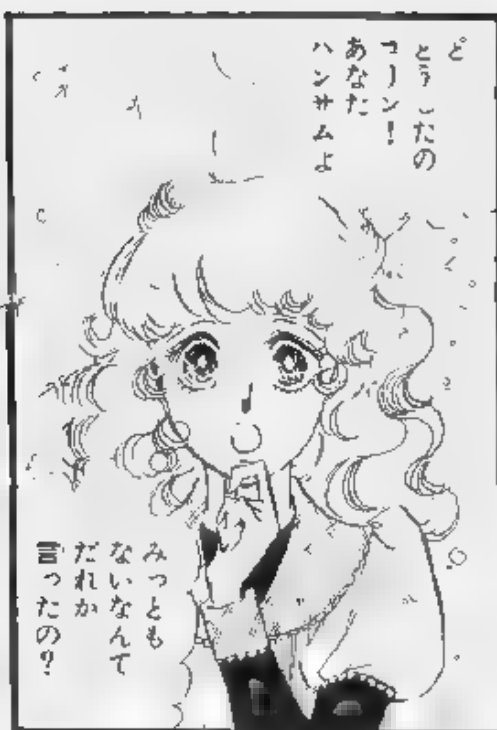 ど
どうしたの
コーン!
あなた
ハンサムよ
みっとも
ないなんて
だれか
言ったの?